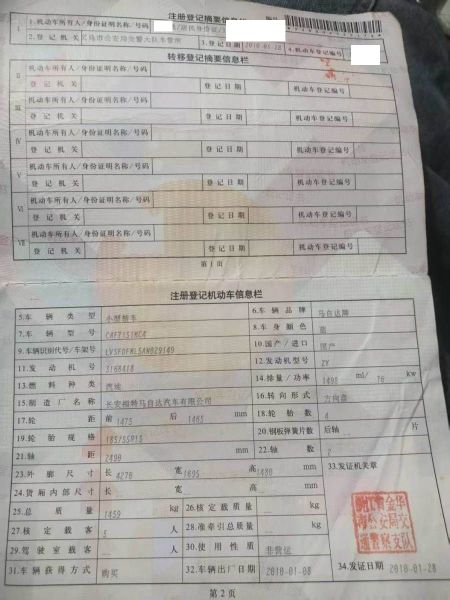 注册登记摘要信息栏
1.机动车所有人/身份证明名称/号码 /居民身份证/
2.登记机关 义乌市公安局交警大队车管所 3.登记日期 2010-01-28 4.机动车登记编号
转移登记摘要信息栏
Ⅱ 机动车所有人/身份证明名称/号码
登记机关 登记日期 机动车登记编号
Ⅲ 机动车所有人/身份证明名称/号码
登记机关 登记日期 机动车登记编号
Ⅳ 机动车所有人/身份证明名称/号码
登记机关 登记日期 机动车登记编号
Ⅴ 机动车所有人/身份证明名称/号码
登记机关 登记日期 机动车登记编号
Ⅵ 机动车所有人/身份证明名称/号码
登记机关 登记日期 机动车登记编号
Ⅶ 机动车所有人/身份证明名称/号码
登记机关 登记日期 机动车登记编号
第1页
注册登记机动车信息栏
5.车辆类型 小型轿车 6.车辆品牌 马自达牌
7.车辆型号 CAF7151MCA 8.车身颜色
9.车辆识别代号/车架号 10.国产/进口 国产
11.发动机号 3168418 12.发动机型号 ZY
13.燃料种类 汽油 14.排量/功率 1498 ml/ 76 kw
15.制造厂名称 长安福特马自达汽车有限公司 16.转向形式 方向盘
17.轮距 前 1475 后 1465 mm 18.轮胎数 4
19.轮胎规格 185/55R15 20.钢板弹簧片数 后轴 片
21.轴距 2490 mm 22.轴数 2
23.外廓尺寸 长 4270 宽 1695 高 1480 mm 33.发证机关章
24.货厢内部尺寸 长 宽 高 mm
25.总质量 1459 kg 26.核定载质量 kg
27.核定载客 5 人 28.准牵引总质量 kg
29.驾驶室载客 人 30.使用性质 非营运
31.车辆获得方式 购买 32.车辆出厂日期 2010-01-08 34.发证日期 2010-01-28
第2页